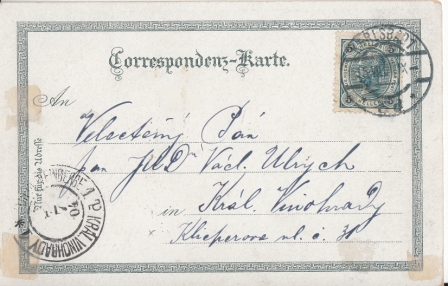 Correspondenz-Karte.
An
Velectěný Pán
pan JUD Václ. Ulrych
in Král. Vinohrady
Klicperova ul. č. 30
Nur für die Adresse
KRÁL. VINOHRADY 1